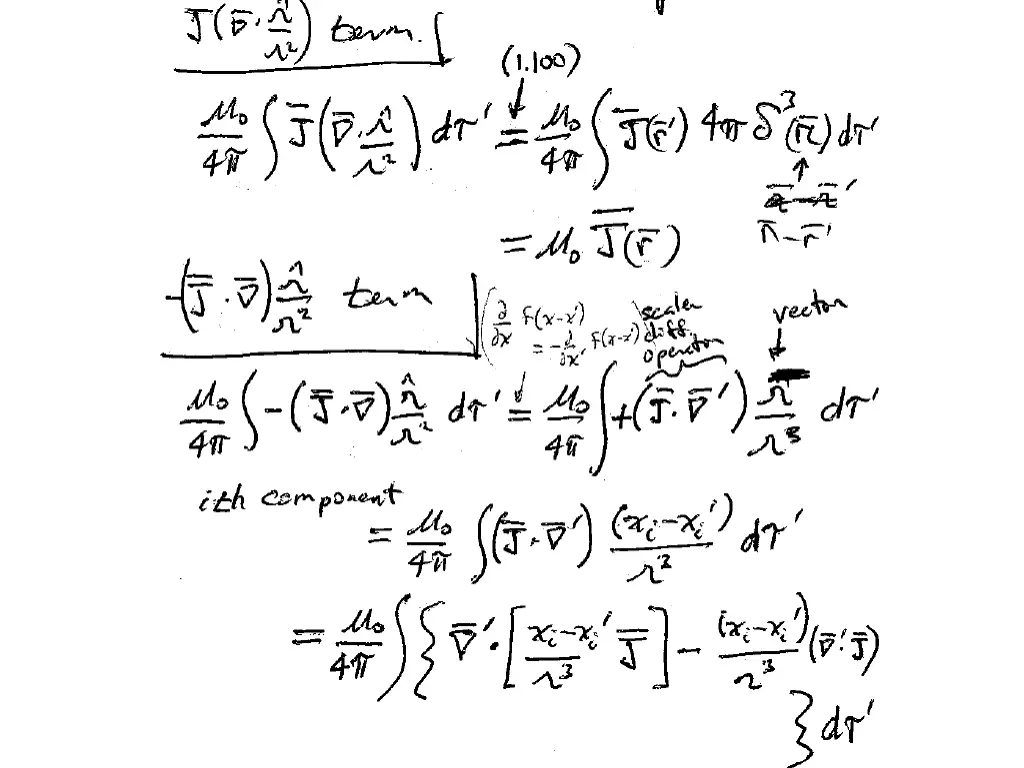 J̄(∇̄·𝓇̂/𝓇²) term.
(1.100)
μ₀/4π ∫ J̄(∇̄·𝓇̂/𝓇²) dτ' = μ₀/4π ∫ J̄(r̄') 4π δ³(𝓇̄) dτ'
r̄-r̄'
= μ₀ J̄(r̄)
-(J̄·∇̄)𝓇̂/𝓇² term
(∂/∂x f(x-x') = -∂/∂x' f(x-x'))
scalar diff. operator
vector
μ₀/4π ∫ -(J̄·∇̄)𝓇̂/𝓇² dτ' = μ₀/4π ∫ +(J̄·∇̄')𝓇̄/𝓇³ dτ'
ith component
= μ₀/4π ∫(J̄·∇̄') (xᵢ-xᵢ')/𝓇³ dτ'
= μ₀/4π ∫ { ∇̄'·[xᵢ-xᵢ'/𝓇³ J̄] - (xᵢ-xᵢ')/𝓇³ (∇̄'·J̄)
} dτ'